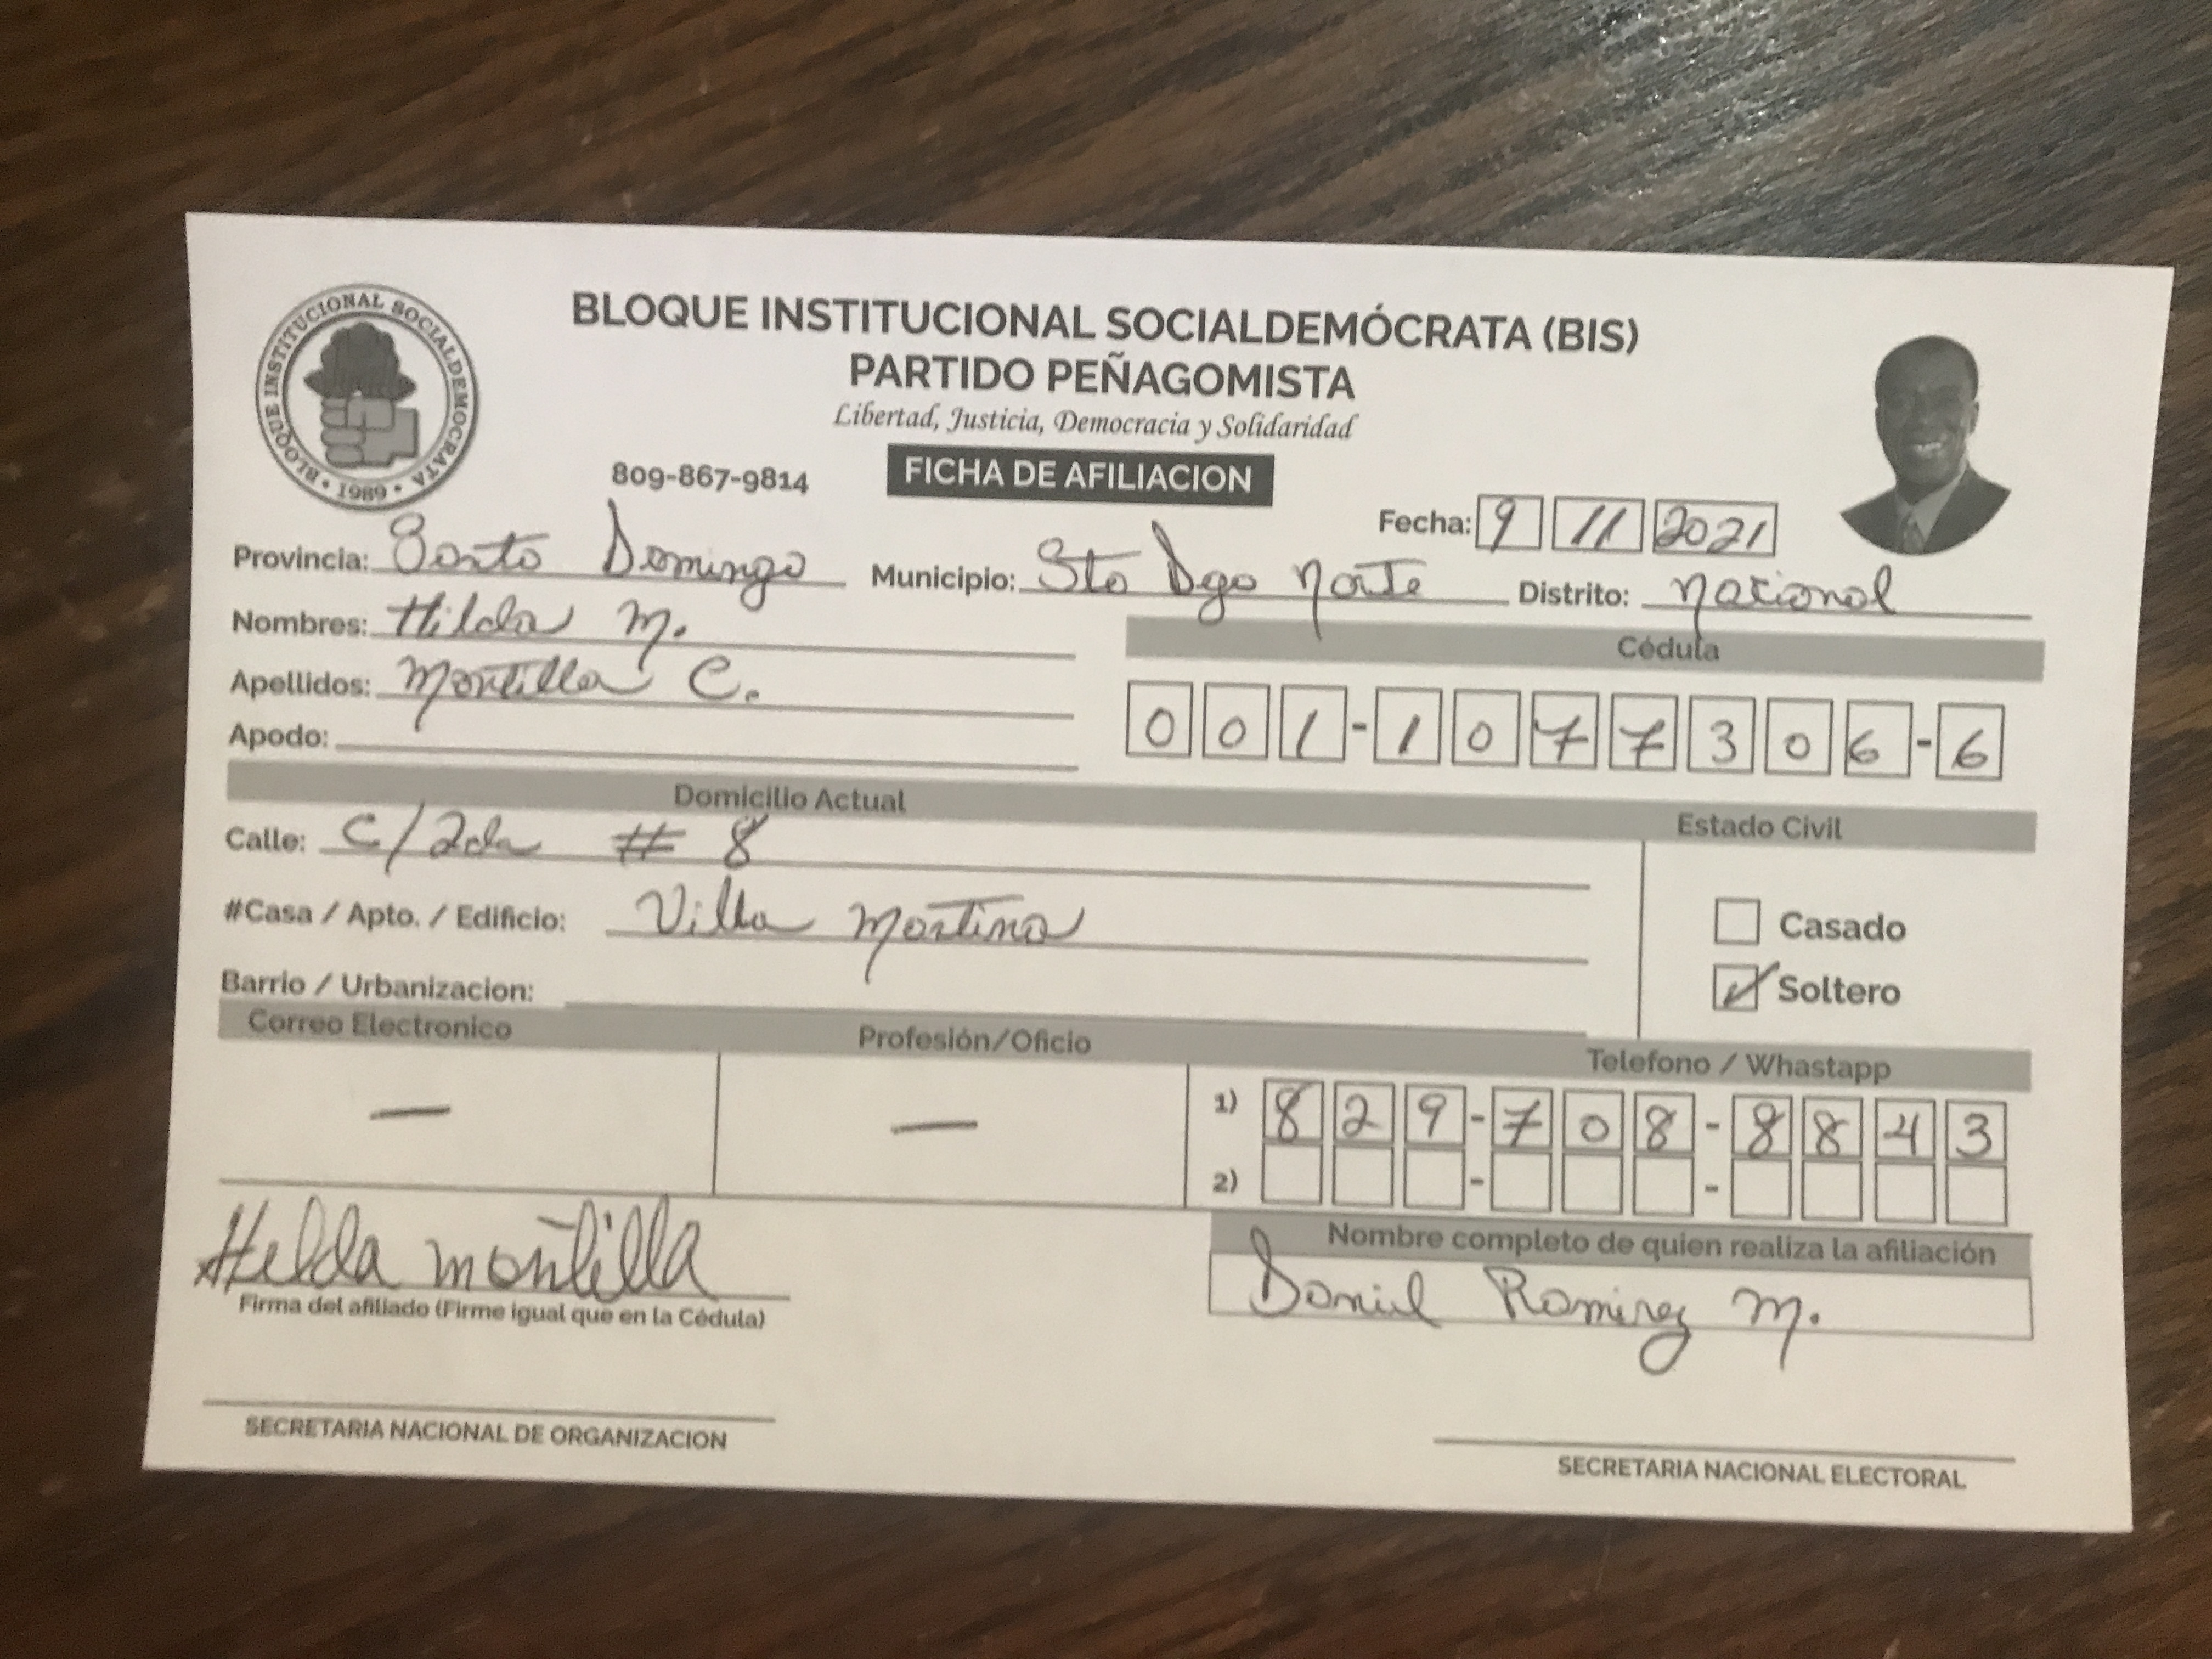 BLOQUE INSTITUCIONAL SOCIALDEMOCRATA
• 1989 •
BLOQUE INSTITUCIONAL SOCIALDEMÓCRATA (BIS)
PARTIDO PEÑAGOMISTA
Libertad, Justicia, Democracia y Solidaridad
809-867-9814 FICHA DE AFILIACION
Fecha: 9 11 2021
Provincia: Santo Domingo Municipio: Sto Dgo Norte Distrito: Nacional
Nombres: Hilda M.
Cédula
Apellidos: Montilla C.
001-1077306-6
Apodo:
Domicilio Actual Estado Civil
Calle: C/2da # 8
#Casa / Apto. / Edificio: Villa Martina
Casado
Barrio / Urbanizacion:
Soltero
Correo Electronico Profesión/Oficio Telefono / Whastapp
— — 1) 829-708-8843
2) - -
Hilda montilla
Firma del afiliado (Firme igual que en la Cédula)
Nombre completo de quien realiza la afiliación
Daniel Ramirez M.
SECRETARIA NACIONAL DE ORGANIZACION
SECRETARIA NACIONAL ELECTORAL